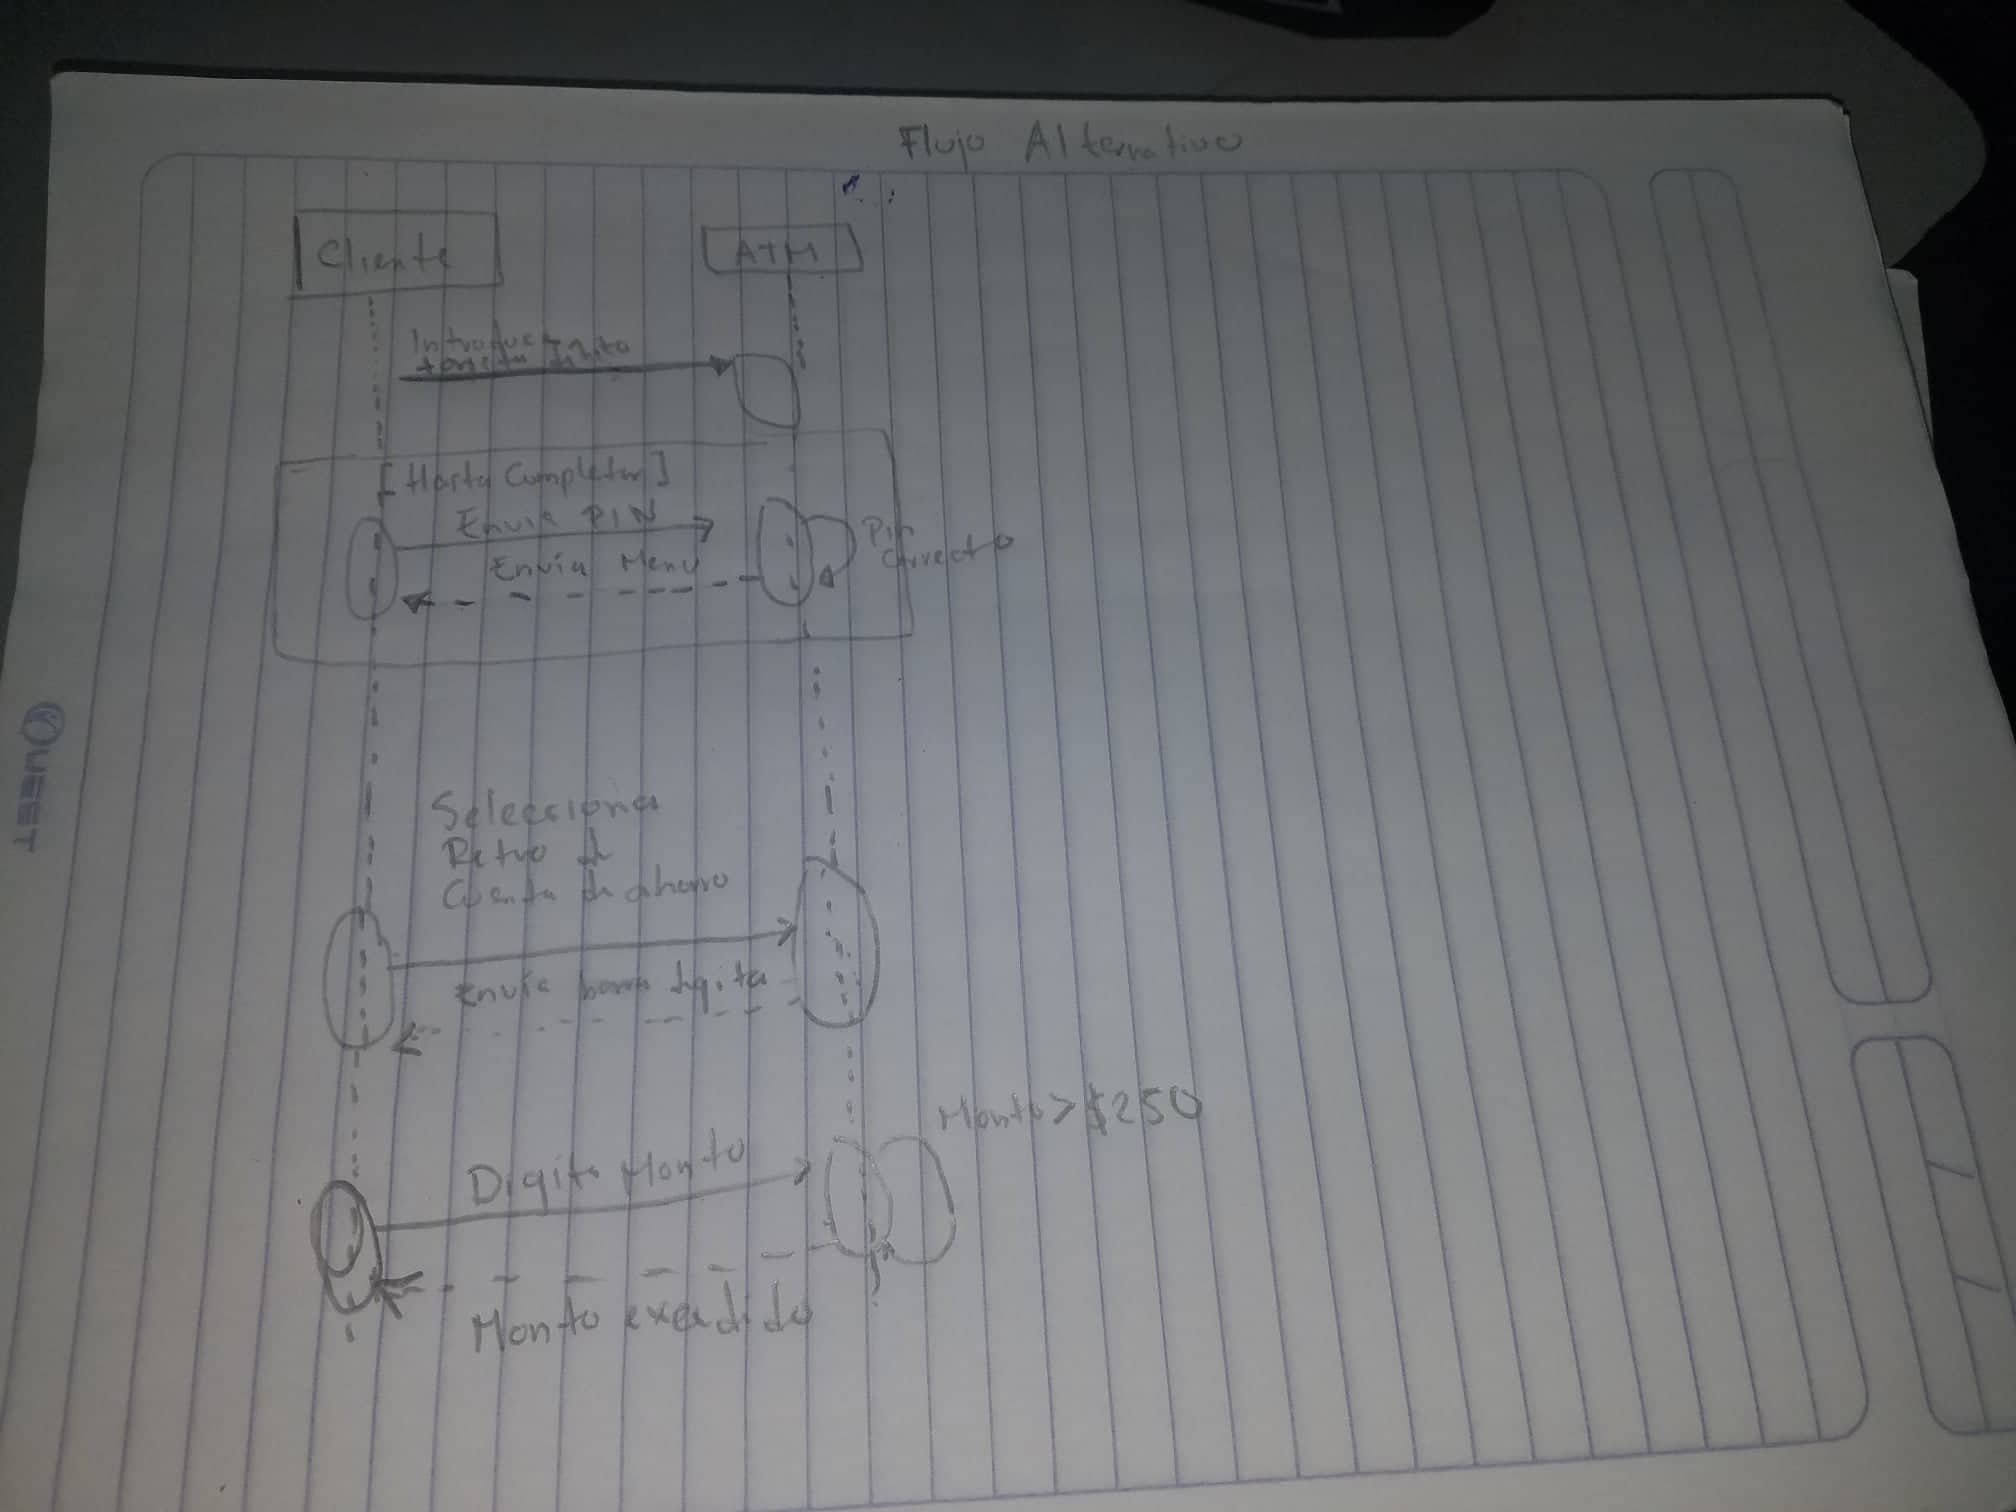 Flujo Alternativo
Cliente
ATM
Introduce
tarjeta débito
[Hasta Completar]
Envia PIN
Pin
Correcto
Envía Menu
Selecciona
Retiro de
Cuenta de ahorro
Envía barra digita
Monto > $250
Digita Monto
Monto exedido
QUEST